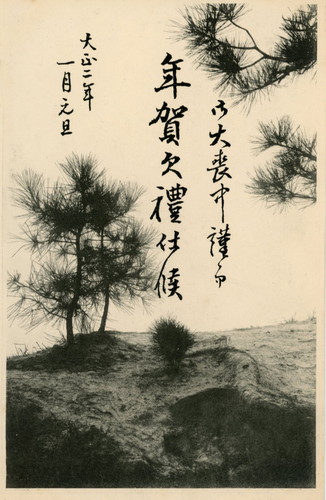 御大喪中謹而
年賀欠禮仕候
大正二年
一月元旦